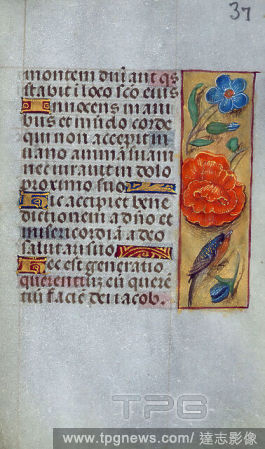 37
montem dni aut qs
stabit i loco sco eius
Innocens mani
bus et mūdo corde
qui non accepit in
uano animā suam
nec iurauit in dolo
proximo suo
Hic accipiet bene
dictionem a dño et
misericordiā a deo
salutari suo
Hec est generatio
querentiū eū quere
tiū faciē dei iacob.
TPG
www.tpgnews.com / 達志影像